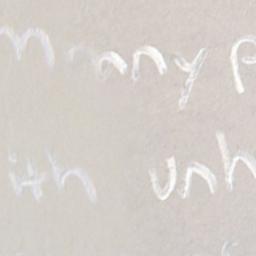 many p
ith unh